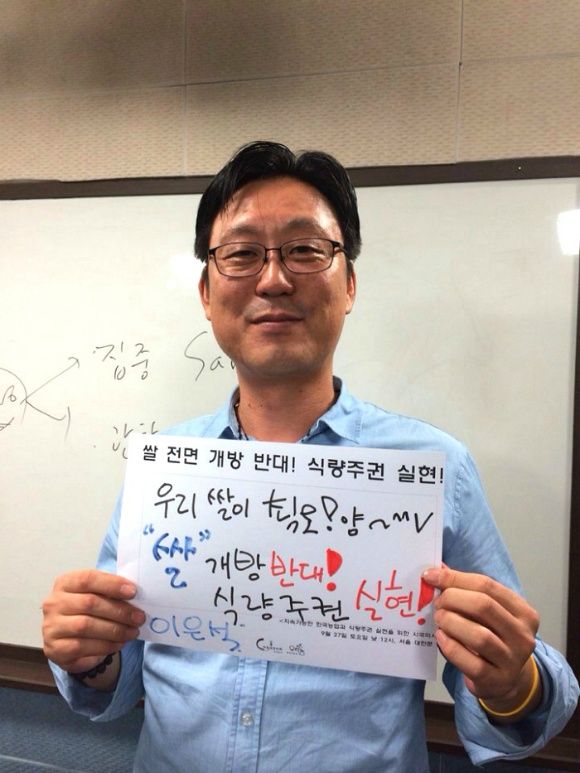 집중 Sa
쌀 전면 개방 반대! 식량주권 실현!
우리 쌀이 최오!양~^^V
"쌀" 개방 반대!
식량주권 실현!
이은
<지속가능한 한국농업과 식량주권 실현을 위한 시국미사>
9월 27일 토요일 낮 12시, 서울 대한문